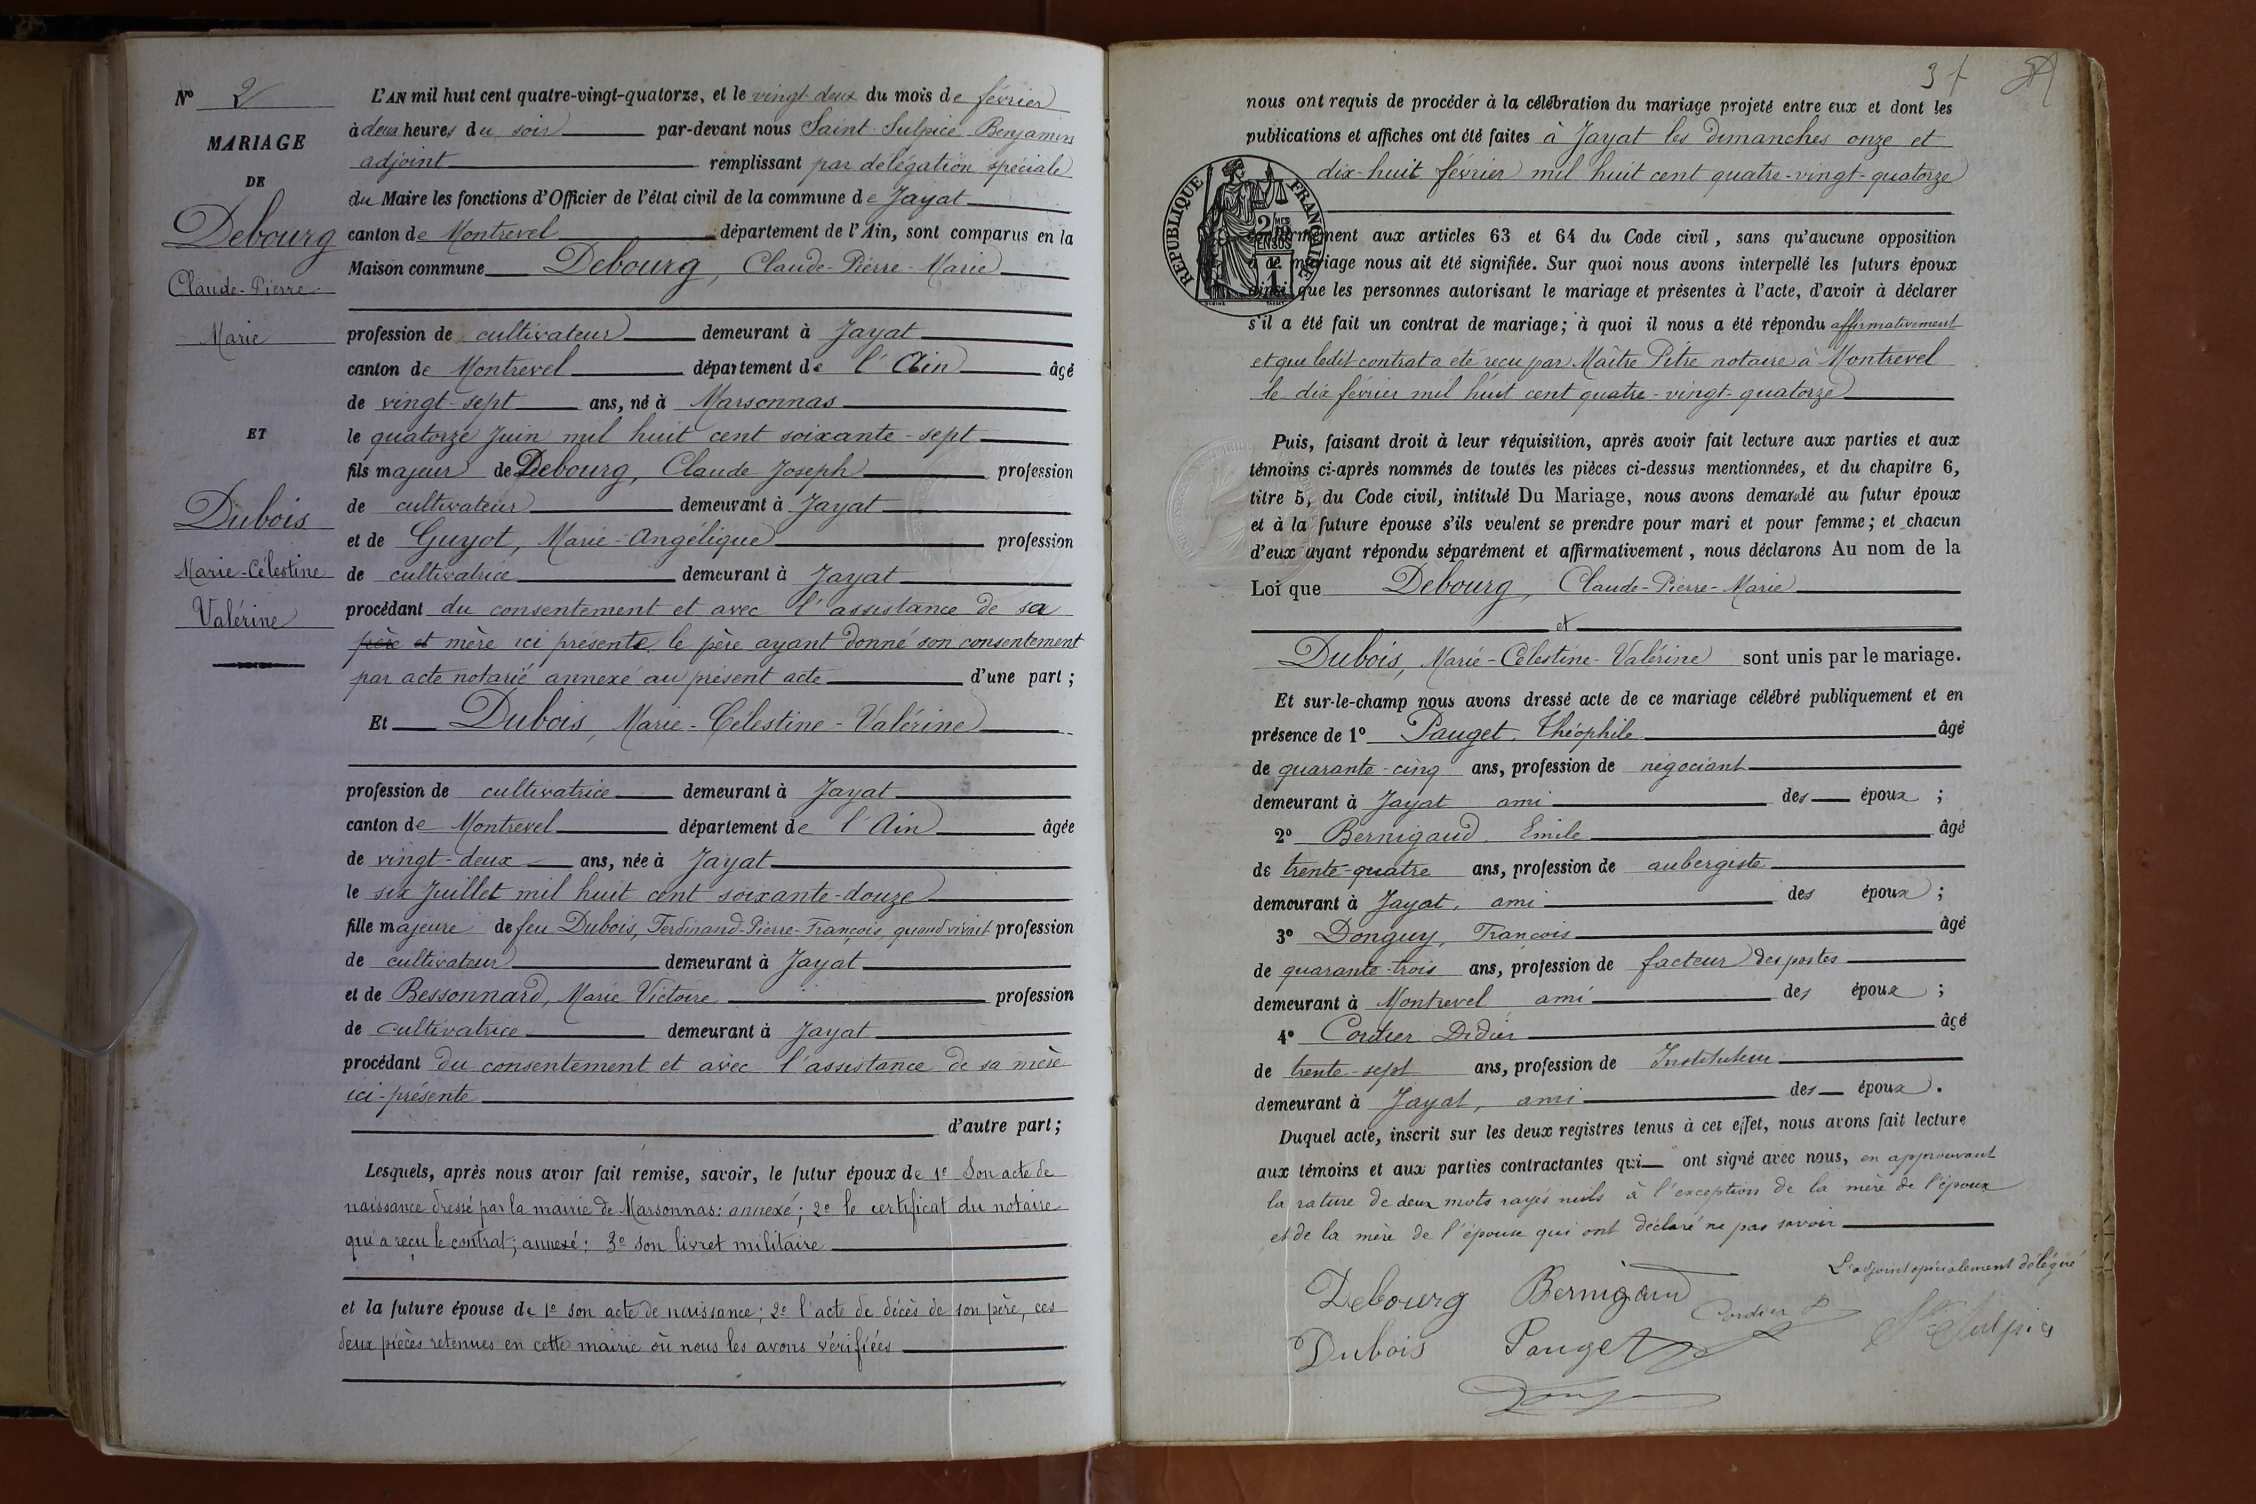 N° 2
MARIAGE
DE
Debourg
Claude-Pierre-
Marie
ET
Dubois
Marie-Célestine
Valérine
L'AN mil huit cent quatre-vingt-quatorze, et le vingt-deux du mois de février
à deux heures du soir par-devant nous Saint-Sulpice Benjamin
adjoint remplissant par délégation spéciale
du Maire les fonctions d'Officier de l'état civil de la commune de Jayat
canton de Montrevel département de l'Ain, sont comparus en la
Maison commune Debourg, Claude-Pierre-Marie
profession de cultivateur demeurant à Jayat
canton de Montrevel département de l'Ain âgé
de vingt-sept ans, né à Marsonnas
le quatorze Juin mil huit cent soixante-sept
fils majeur de Debourg, Claude Joseph profession
de cultivateur demeurant à Jayat
et de Guyot, Marie-Angélique profession
de cultivatrice demeurant à Jayat
procédant du consentement et avec l'assistance de sa
père et mère ici présente, le père ayant donné son consentement
par acte notarié annexé au présent acte d'une part ;
Et Dubois, Marie-Célestine-Valérine
profession de cultivatrice demeurant à Jayat
canton de Montrevel département de l'Ain âgée
de vingt-deux ans, née à Jayat
le six Juillet mil huit cent soixante-douze
fille majeure de feu Dubois, Ferdinand-Pierre-François, quand vivait profession
de cultivateur demeurant à Jayat
et de Bessonnard, Marie Victoire profession
de cultivatrice demeurant à Jayat
procédant du consentement et avec l'assistance de sa mère
ici-présente
d'autre part ;
Lesquels, après nous avoir fait remise, savoir, le futur époux de 1° Son acte de
naissance dressé par la mairie de Marsonnas : annexé ; 2° le certificat du notaire
qui a reçu le contrat ; annexé ; 3° son livret militaire
et la future épouse de 1° son acte de naissance ; 2° l'acte de décès de son père, ces
deux pièces retenues en cette mairie où nous les avons vérifiées
nous ont requis de procéder à la célébration du mariage projeté entre eux et dont les
publications et affiches ont été faites à Jayat les dimanches onze et
dix-huit février mil huit cent quatre-vingt-quatorze
RÉPUBLIQUE FRANÇAISE
conformément aux articles 63 et 64 du Code civil, sans qu'aucune opposition
à ce mariage nous ait été signifiée. Sur quoi nous avons interpellé les futurs époux
ainsi que les personnes autorisant le mariage et présentes à l'acte, d'avoir à déclarer
s'il a été fait un contrat de mariage ; à quoi il nous a été répondu affirmativement
et que ledit contrat a été reçu par Maître Pitre notaire à Montrevel
le dix février mil huit cent quatre-vingt-quatorze
Puis, faisant droit à leur réquisition, après avoir fait lecture aux parties et aux
témoins ci-après nommés de toutes les pièces ci-dessus mentionnées, et du chapitre 6,
titre 5, du Code civil, intitulé Du Mariage, nous avons demandé au futur époux
et à la future épouse s'ils veulent se prendre pour mari et pour femme ; et chacun
d'eux ayant répondu séparément et affirmativement, nous déclarons Au nom de la
Loi que Debourg, Claude-Pierre-Marie
et
Dubois, Marie-Célestine-Valérine sont unis par le mariage.
Et sur-le-champ nous avons dressé acte de ce mariage célébré publiquement et en
présence de 1° Pauget, Théophile âgé
de quarante-cinq ans, profession de négociant
demeurant à Jayat ami des époux ;
2° Bernigaud Emile âgé
de trente-quatre ans, profession de aubergiste
demeurant à Jayat, ami des époux ;
3° Donguy, François âgé
de quarante-trois ans, profession de facteur des postes
demeurant à Montrevel ami des époux ;
4° Cordier Didier âgé
de trente-sept ans, profession de Instituteur
demeurant à Jayat, ami des époux.
Duquel acte, inscrit sur les deux registres tenus à cet effet, nous avons fait lecture
aux témoins et aux parties contractantes qui ont signé avec nous, en approuvant
la rature de deux mots rayés nuls à l'exception de la mère de l'époux
et de la mère de l'épouse qui ont déclaré ne pas savoir
L'adjoint spécialement délégué
Debourg Bernigaud Cordier D St Sulpice
Dubois Pauget